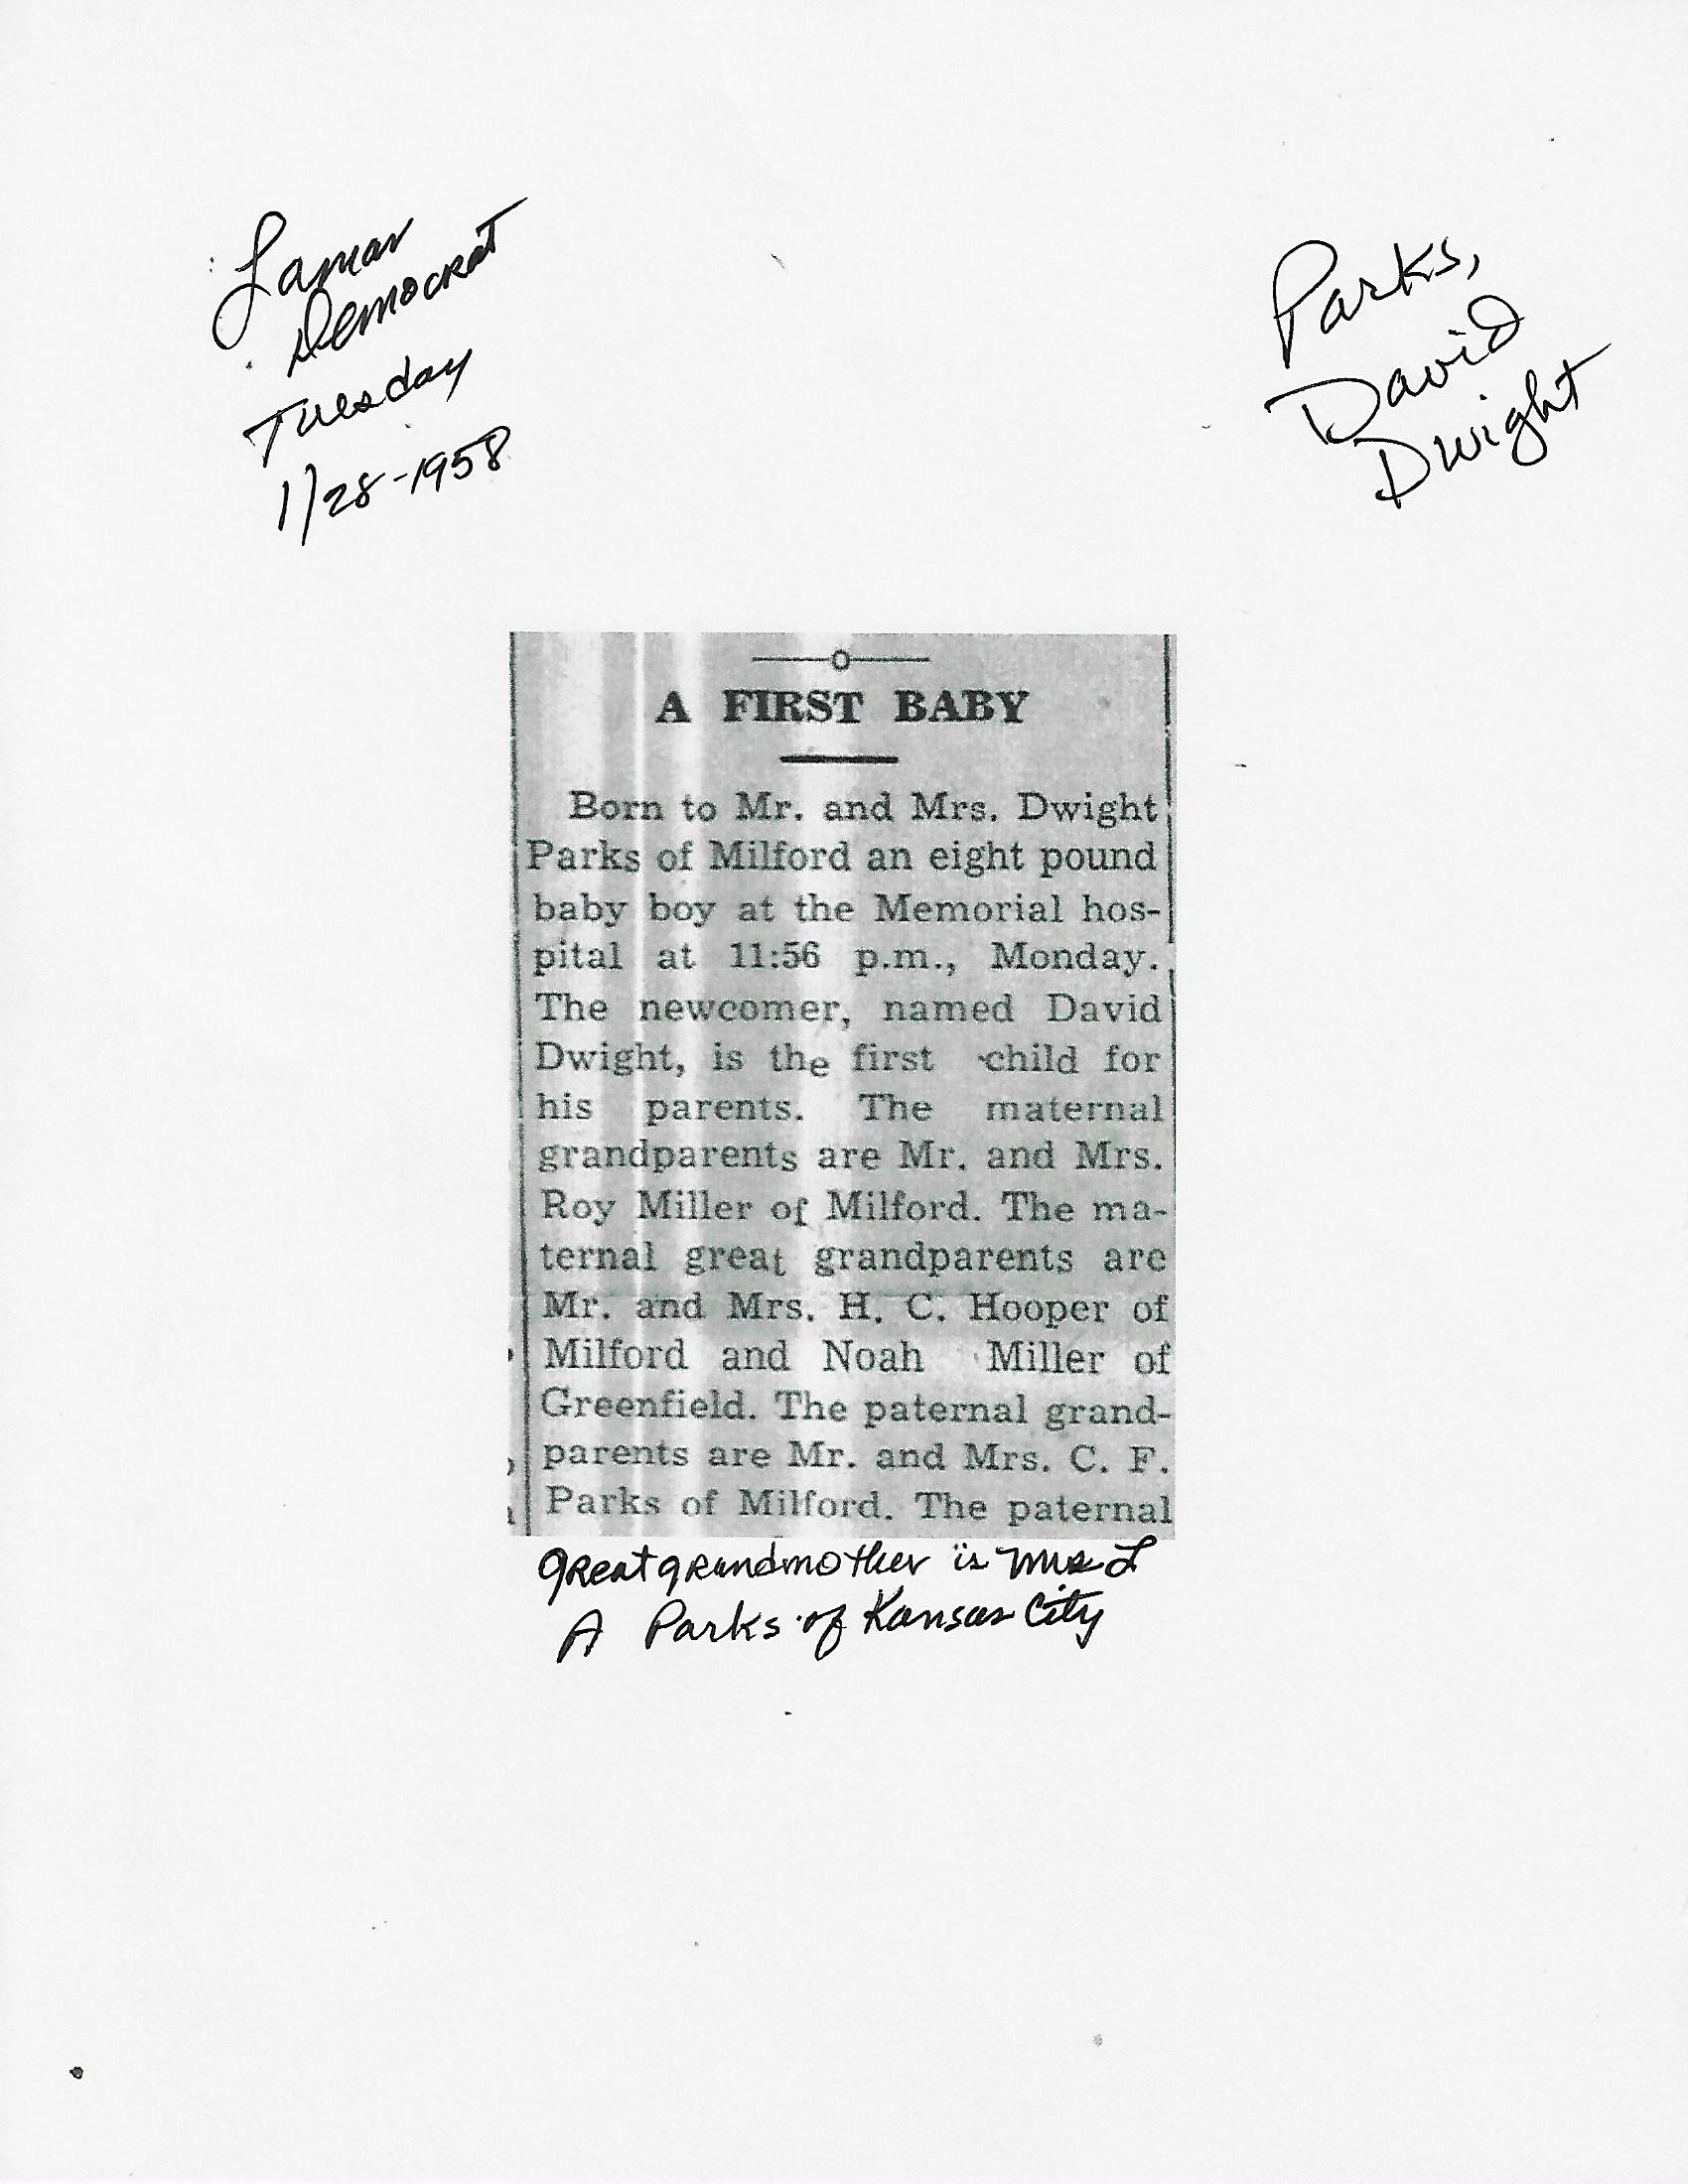 Lamar
Democrat
Tuesday
1/28-1958
Parks,
David
Dwight
A FIRST BABY
Born to Mr. and Mrs. Dwight
Parks of Milford an eight pound
baby boy at the Memorial hos-
pital at 11:56 p.m., Monday.
The newcomer, named David
Dwight, is the first child for
his parents. The maternal
grandparents are Mr. and Mrs.
Roy Miller of Milford. The ma-
ternal great grandparents are
Mr. and Mrs. H. C. Hooper of
Milford and Noah Miller of
Greenfield. The paternal grand-
parents are Mr. and Mrs. C. F.
Parks of Milford. The paternal
great grandmother is Mrs L
A Parks of Kansas City